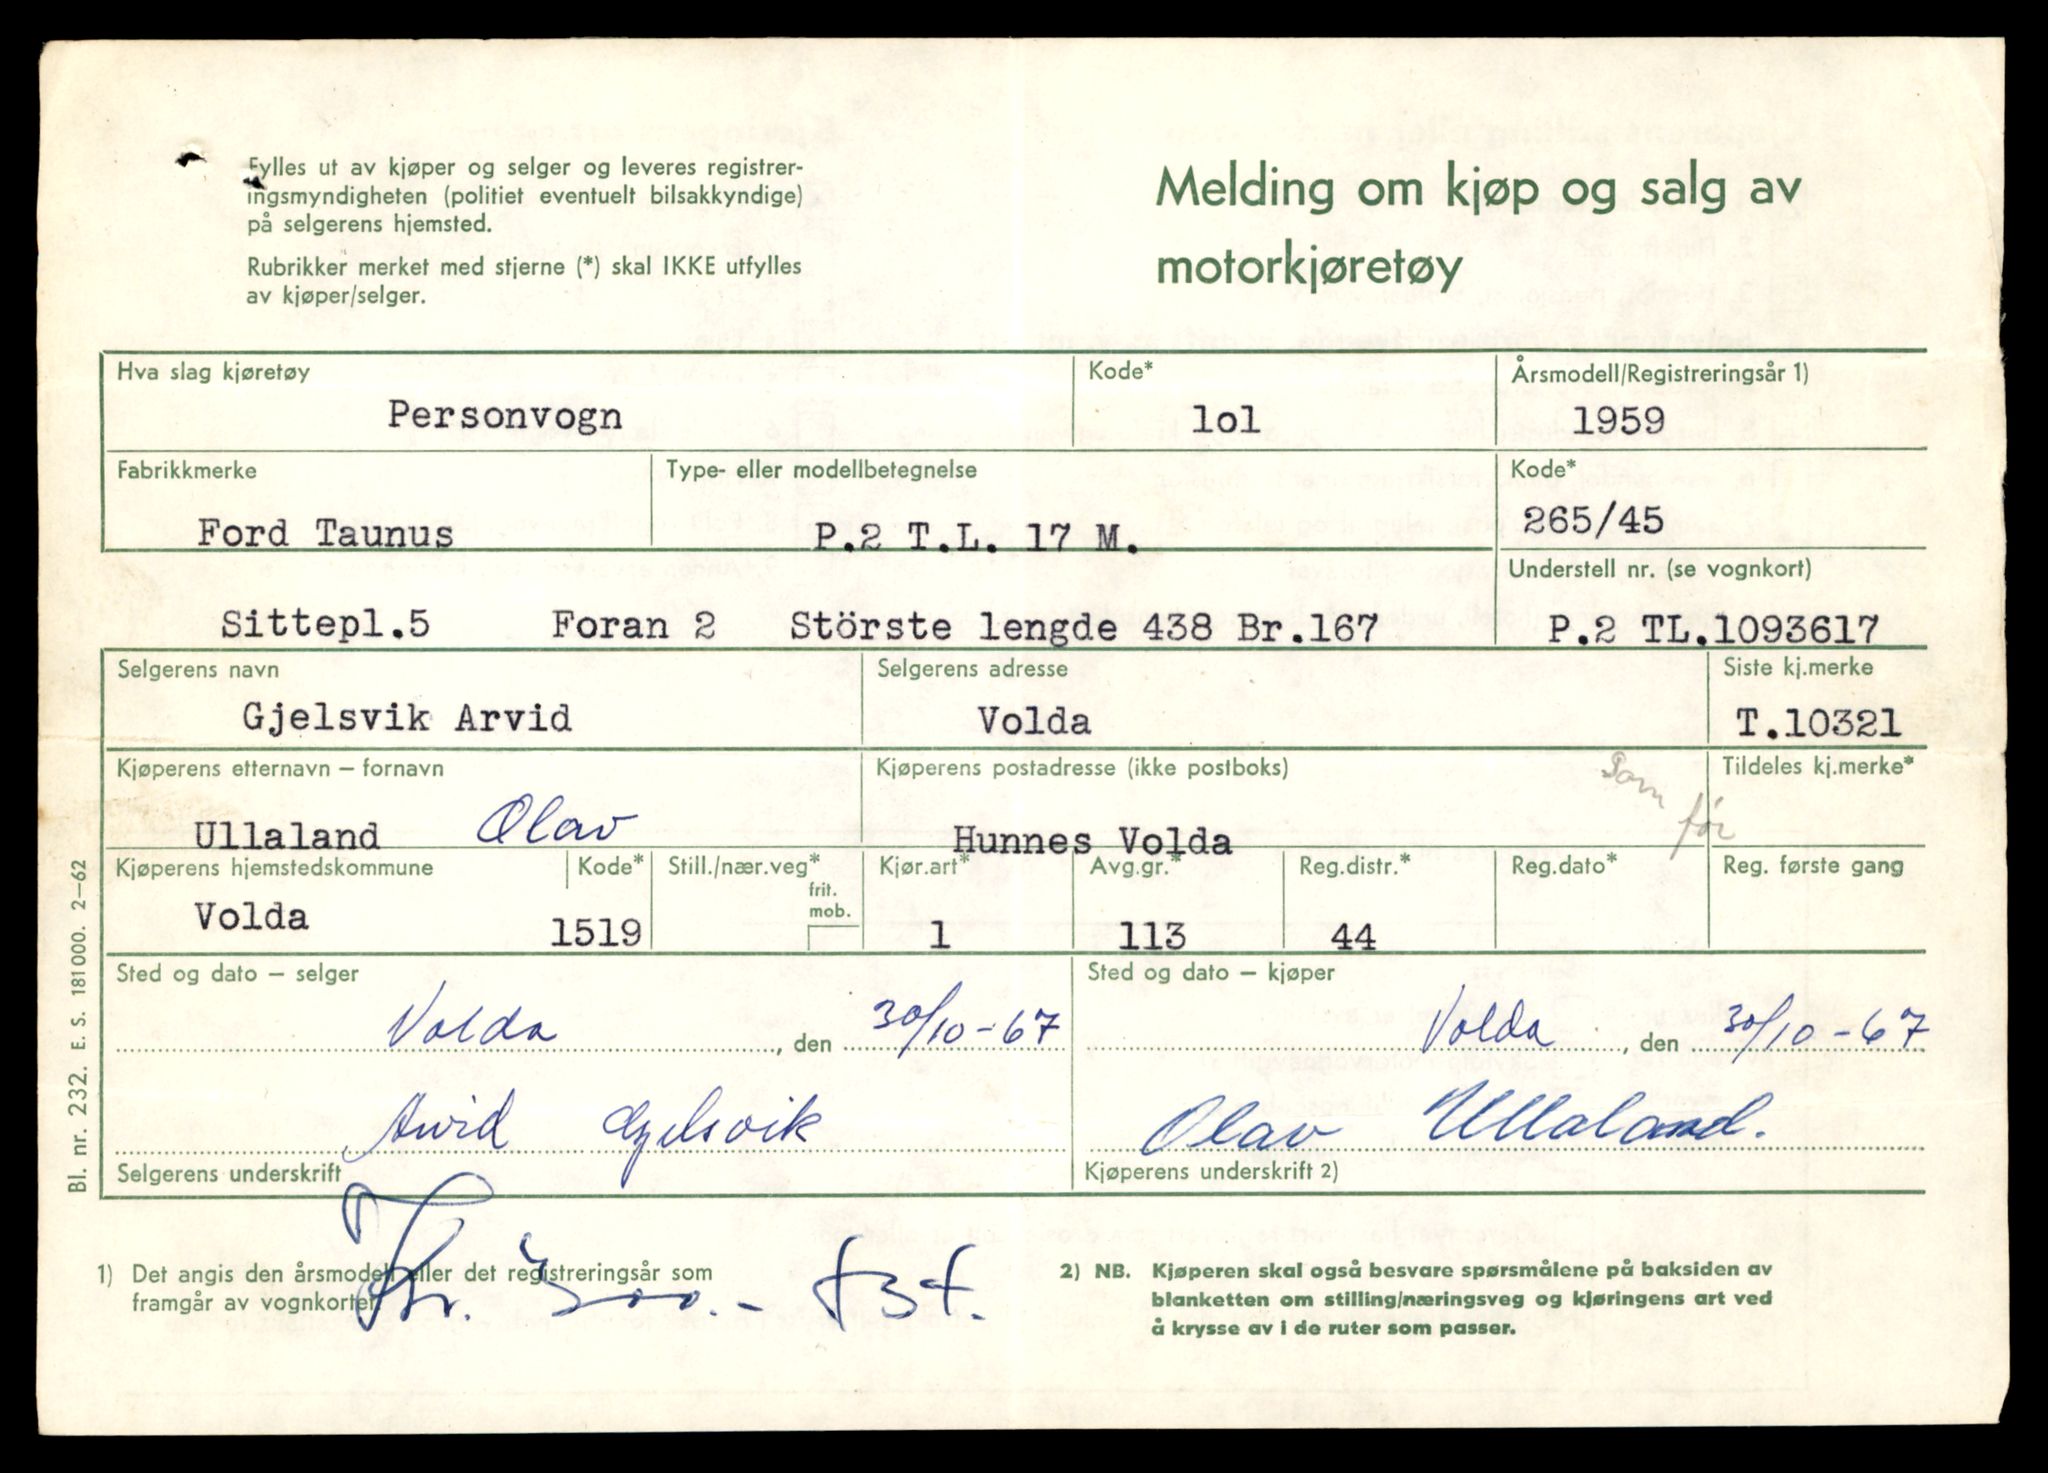 Fylles ut av kjøper og selger og leveres registrer-
ingsmyndigheten (politiet eventuelt bilsakkyndige)
på selgerens hjemsted.
Rubrikker merket med stjerne (*) skal IKKE utfylles
av kjøper/selger.
Melding om kjøp og salg av
motorkjøretøy
Hva slag kjøretøy Kode* Årsmodell/Registreringsår 1)
Personvogn lol 1959
Fabrikkmerke Type- eller modellbetegnelse Kode*
Ford Taunus P.2 T.L. 17 M. 265/45
Understell nr. (se vognkort)
Sittepl.5 Foran 2 Störste lengde 438 Br.167 P.2 TL.1093617
Selgerens navn Selgerens adresse Siste kj.merke
Gjelsvik Arvid Volda T.10321
Kjøperens etternavn – fornavn Kjøperens postadresse (ikke postboks) Tildeles kj.merke*
Som før
Ullaland Olav Hunnes Volda
Kjøperens hjemstedskommune Kode* Still./nær.veg* Kjør.art* Avg.gr.* Reg.distr.* Reg.dato* Reg. første gang
frit.
mob.
Volda 1519 1 113 44
Sted og dato – selger Sted og dato – kjøper
Volda, den 30/10-67 Volda, den 30/10-67
Arvid Gjelsvik Olav Ullaland.
Selgerens underskrift Kjøperens underskrift 2)
1) Det angis den årsmodell eller det registreringsår som
framgår av vognkortet.
Kr. 300.-
2) NB. Kjøperen skal også besvare spørsmålene på baksiden av
blanketten om stilling/næringsveg og kjøringens art ved
å krysse av i de ruter som passer.
Bl. nr. 232. E. S. 181 000. 2–62